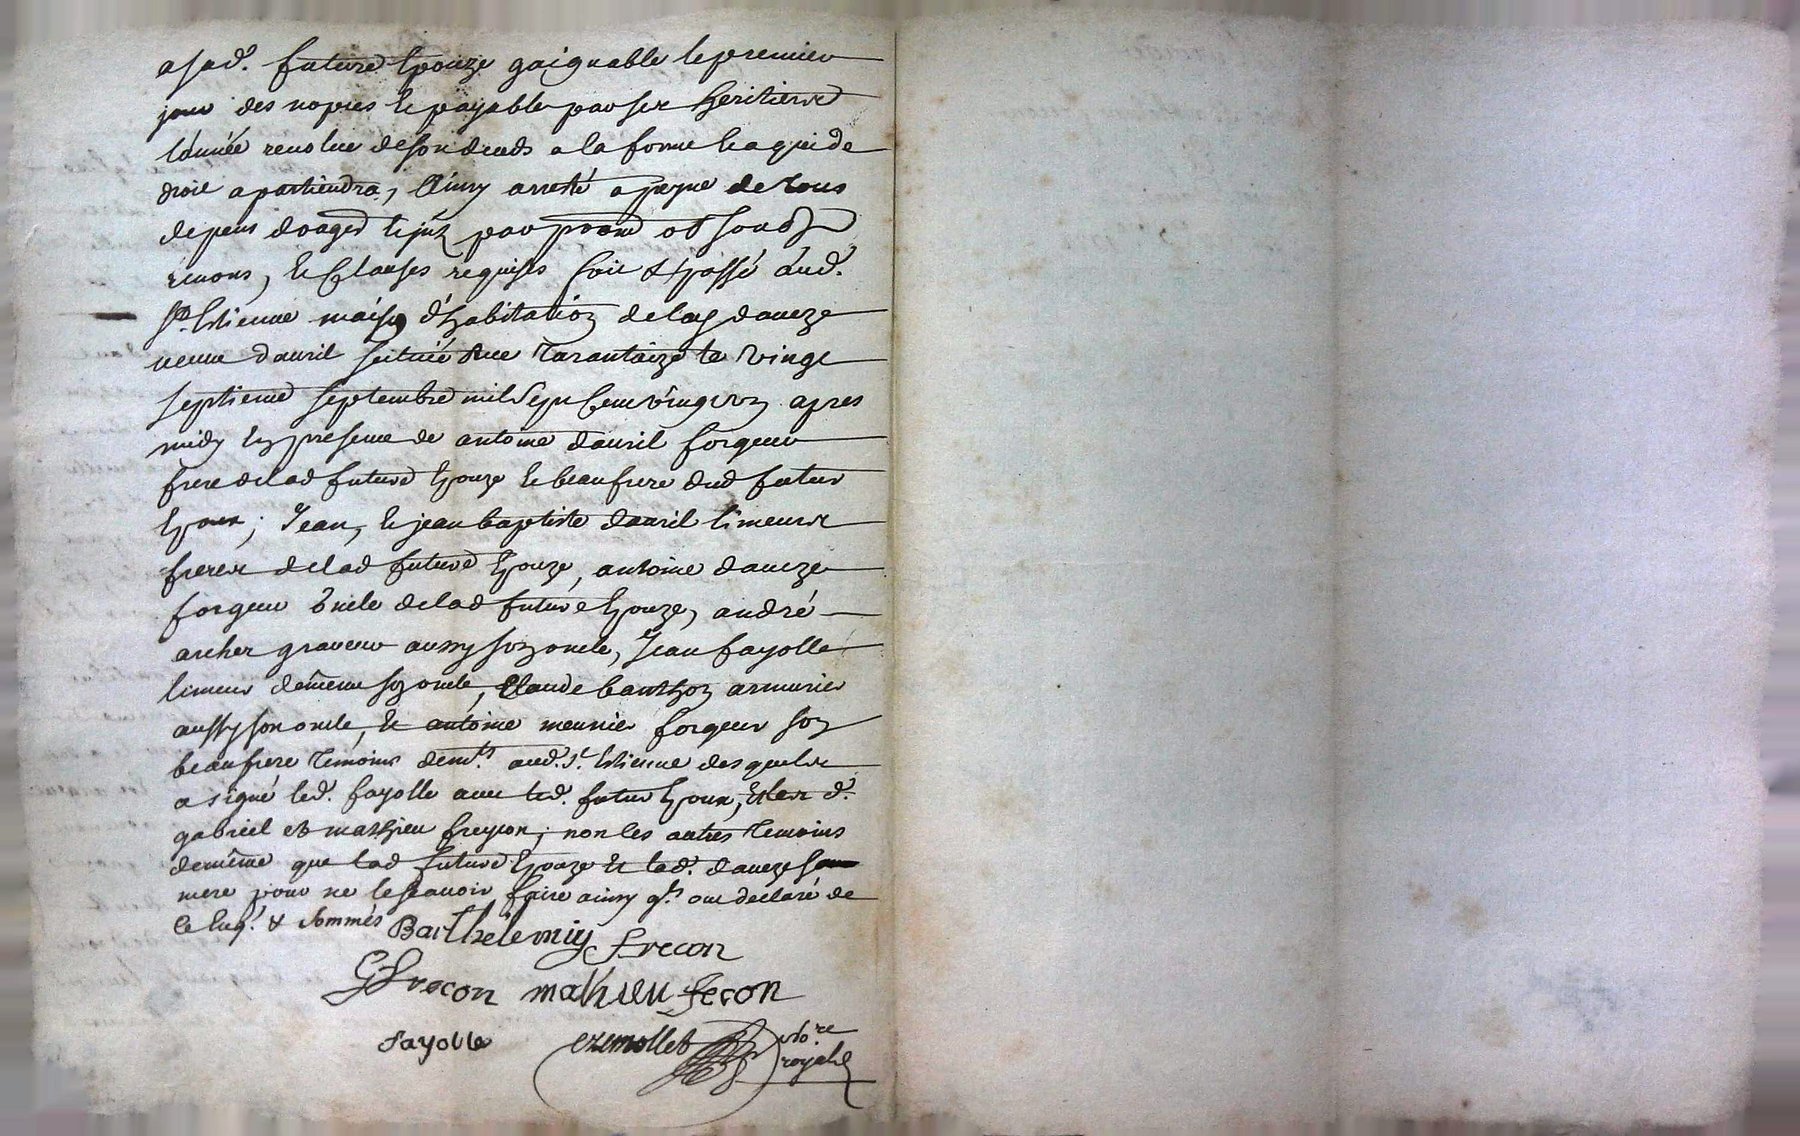 a sad. future Epouze gaignable le premier
jour des nopces Et payable par ses heritiers
l'année revolue de son deceds a la forme Et a qui de
droit apartiendra, Ainsy aresté a peyne de tous
depens domages
renons, Et Clauses requises fait & passé aud.
St. Estienne maison d'habitation de lad daveze
veuve dauril scituée Rue Tarantaize le vingt
septieme septembre mil sept Cent vingt apres
midy En presence de antoine dauril forgeur
frere de lad future Epouze Et beaufrere dud futur
Epoux; Jean, Et jean baptiste dauril limeurs
freres de lad future Epouze, antoine daveze
forgeur oncle de lad future Epouze, andré
archer graveur aussy son oncle, Jean fayolle
limeur de meme son oncle, Claude banchon armurier
aussy son oncle, Et antoine meunier forgeur son
beaufrere Temoins demt. aud. St. Estienne desquels
a signé led. fayolle avec led. futur Epoux, Et les d.
gabriel et mathieu freycon; non les autres Temoins
de même que lad future Epouze Et lad. daveze sa
mere pour ne le scavoir faire ainsy qls. ont declaré de
ce Enq. & Sommés
Barthelemy frecon
G frecon mathieu frecon
fayolle ezemollet No.re
royal